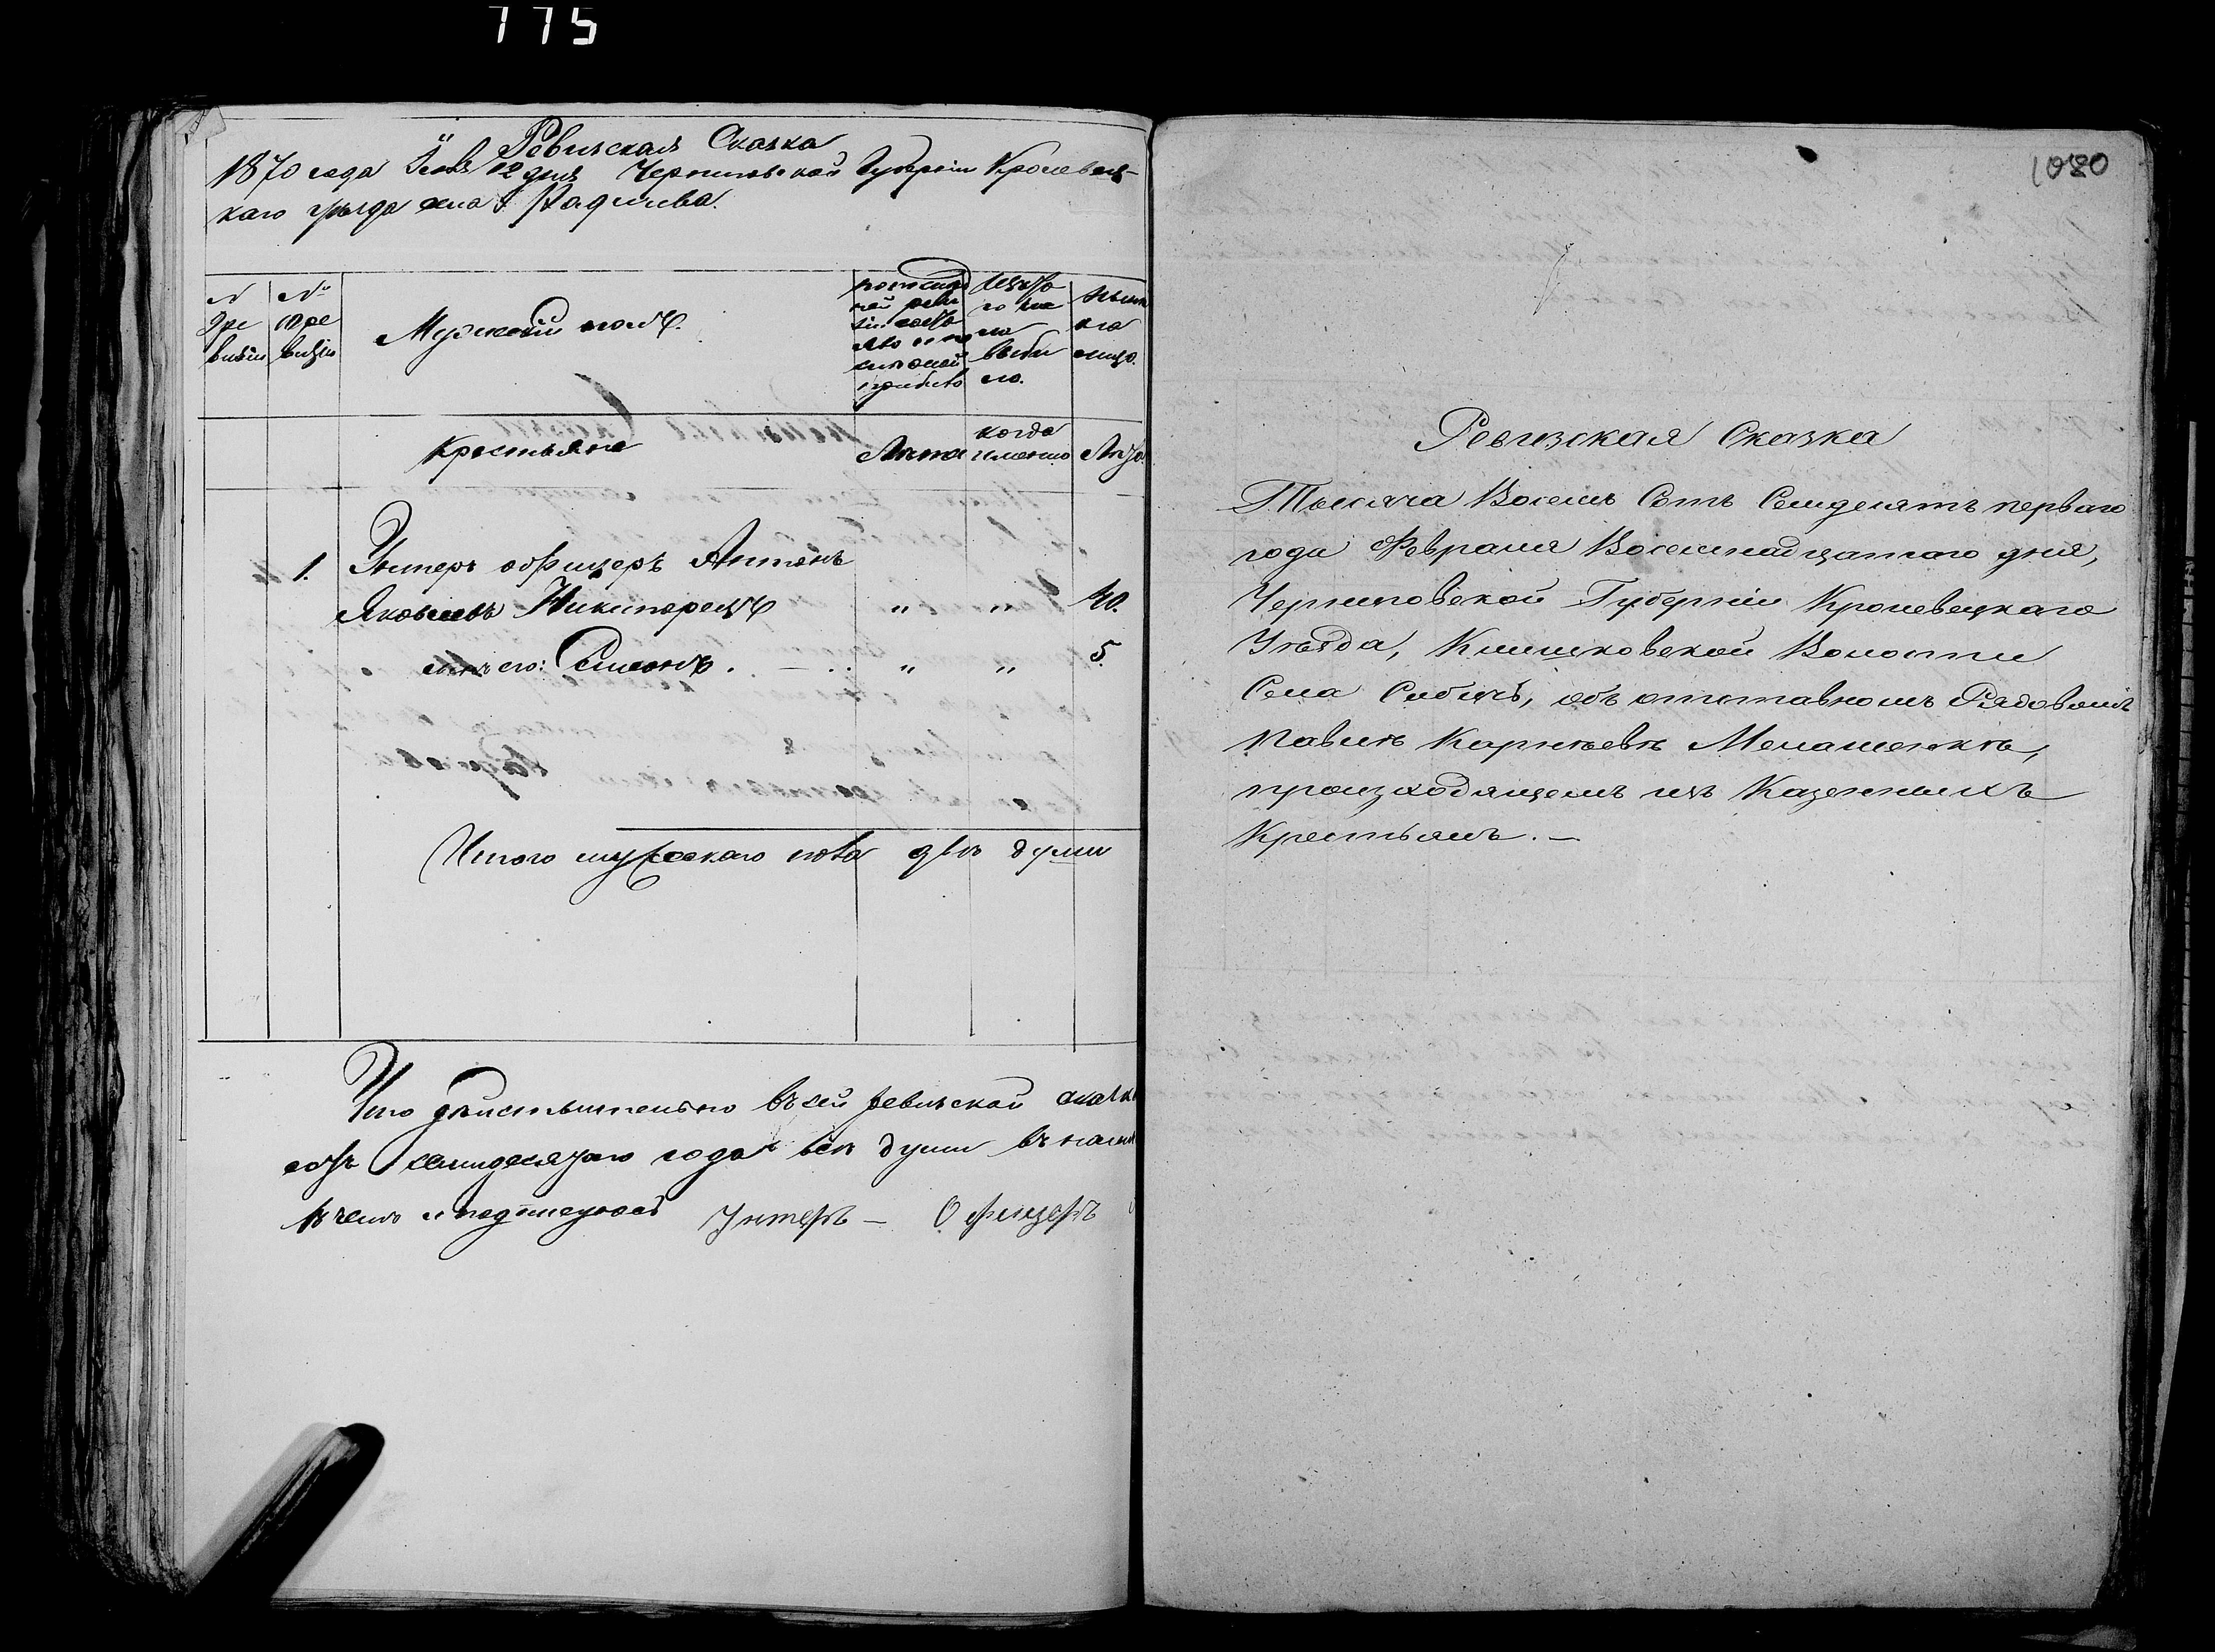 775
Ревизская Сказка
1870 года Іюля 12 дня Черниговской Губерніи Кролевец-
каго уѣзда села Радичева.
№ ре визіи
№ ре визіи
Мужеской полъ.
Изъ то го чи сла выбы ло.
Нынѣ на лицо.
Крестьяне
Лѣта
когда именно
Лѣта
1. Унтеръ офицеръ Антонъ
Яковлевъ Никипорецъ " " 40.
сынъ его: Симонъ. — . . " " 5.
Итого мужескаго пола двѣ души
Что дѣйствительно въ сей ревизской сказкѣ
семидесятаго года всѣ души
въ чемъ и подписуюсь Унтеръ — Офицеръ
1080
Ревизская Сказка
Тысяча Восемь Сотъ Семдесятъ перваго
года Февраля Восемнадцатаго дня,
Черниговской Губерніи Кролевецкаго
Уѣзда, Клишковской Волости
Села Собичъ, объ отставномъ Рядовомъ
Павлѣ Карпѣевѣ Мелашенкѣ,
произходящемъ изъ Казенныхъ
Крестьянъ. —